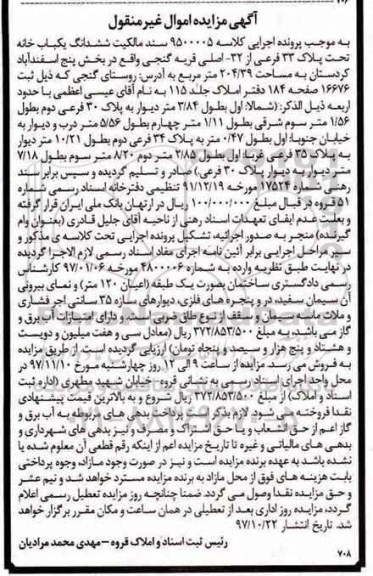 آگهی مزایده اموال غیر منقول
به موجب پرونده اجرایی کلاسه ۹۵۰۰۰۰۵ سند مالکیت ششدانگ یکباب خانه
تحت پلاک ۳۳ فرعی از ۳۲- اصلی قریه گنجی واقع در بخش پنج اسفندآباد
کردستان به مساحت ۲۰۴/۳۹ متر مربع به آدرس: روستای گنجی که ذیل ثبت
۱۶۶۷۶ صفحه ۱۸۴ دفتر املاک جلد ۱۱۵ به نام آقای عیسی اعظمی با حدود
اربعه ذیل الذکر: (شمالا: اول بطول ۳/۸۴ متر دیوار به پلاک ۳۰ فرعی دوم بطول
۱/۵۶ متر سوم شرقی بطول ۱/۱۱ متر چهارم بطول ۵/۵۶ متر درب و دیوار به
خیابان جنوبا: اول بطول ۰/۴۷ متر به پلاک ۳۴ فرعی دوم بطول ۱۰/۲۱ متر دیوار
به پلاک ۳۵ فرعی غربا: اول بطول ۲/۸۵ متر دوم ۸/۲۰ متر سوم بطول ۷/۱۸
متر دیوار به دیوار پلاک ۳۰ فرعی) صادر و تسلیم گردیده و سپس برابر سند
رهنی شماره ۱۷۵۲۴ مورخه ۹۱/۱۲/۱۹ تنظیمی دفترخانه اسناد رسمی شماره
۵۱ قروه در قبال مبلغ ۱۰۰/۰۰۰/۰۰۰ ریال در ارتهان بانک ملی ایران قرار گرفته
و بعلت عدم ایفای تعهدات اسناد رهنی از ناحیه آقای جلیل قادری (بعنوان وام
گیرنده) منجر به صدور اجرائیه، تشکیل پرونده اجرایی تحت کلاسه ی مذکور و
سیر مراحل اجرایی برابر آئین نامه اجرای مفاد اسناد رسمی لازم الاجرا گردیده
در نهایت طبق نظریه وارده به شماره ۴۸۰۰۰۰۶ مورخه ۹۷/۰۱/۰۶ کارشناس
رسمی دادگستری ساختمان بصورت یک طبقه (اعیان ۱۲۰ متر) و نمای بیرونی
آن سیمان سفید، در و پنجره های فلزی، دیوارهای سازه ۳۵ سانتی آجر فشاری
و ملات ماسه سیمان و سقف از نوع طاق ضربی است و دارای امتیازات آب برق و
گاز می باشد، به مبلغ ۳۷۲/۸۵۳/۵۰۰ ریال (معادل سی و هفت میلیون و دویست
و هشتاد و پنج هزار و سیصد و پنجاه تومان) ارزیابی گردیده است. از طریق مزایده
به فروش می رسد. مزایده از ساعت ۹ الی ۱۲ روز چهارشنبه مورخ ۹۷/۱۱/۱۰ در
محل واحد اجرای اسناد رسمی به نشانی قروه- خیابان شهید مطهری (اداره ثبت
اسناد و املاک) از مبلغ ۳۷۲/۸۵۳/۵۰۰ ریال شروع و به بالاترین قیمت پیشنهادی
نقدا فروخته می شود. لازم بذکر است پرداخت بدهی های مربوطه به آب برق و
گاز اعم از حق انشعاب و یا حق اشتراک و مصرف و نیز بدهی های شهرداری و
بدهی های مالیاتی و غیره تا تاریخ مزایده اعم از اینکه رقم قطعی آن معلوم شده یا
نشده باشد به عهده برنده مزایده است و نیز در صورت وجود مازاد، وجوه پرداختی
بابت هزینه های فوق از محل مازاد به برنده مزایده مسترد خواهد شد و نیم عشر
و حق مزایده نقدا وصول می گردد. ضمنا چنانچه روز مزایده تعطیل رسمی اعلام
گردد، مزایده روز اداری بعد از تعطیلی در همان ساعت و مکان مقرر برگزار خواهد
شد. تاریخ انتشار ۹۷/۱۰/۲۲
رئیس ثبت اسناد و املاک قروه – مهدی محمد مرادیان
۷۰۸